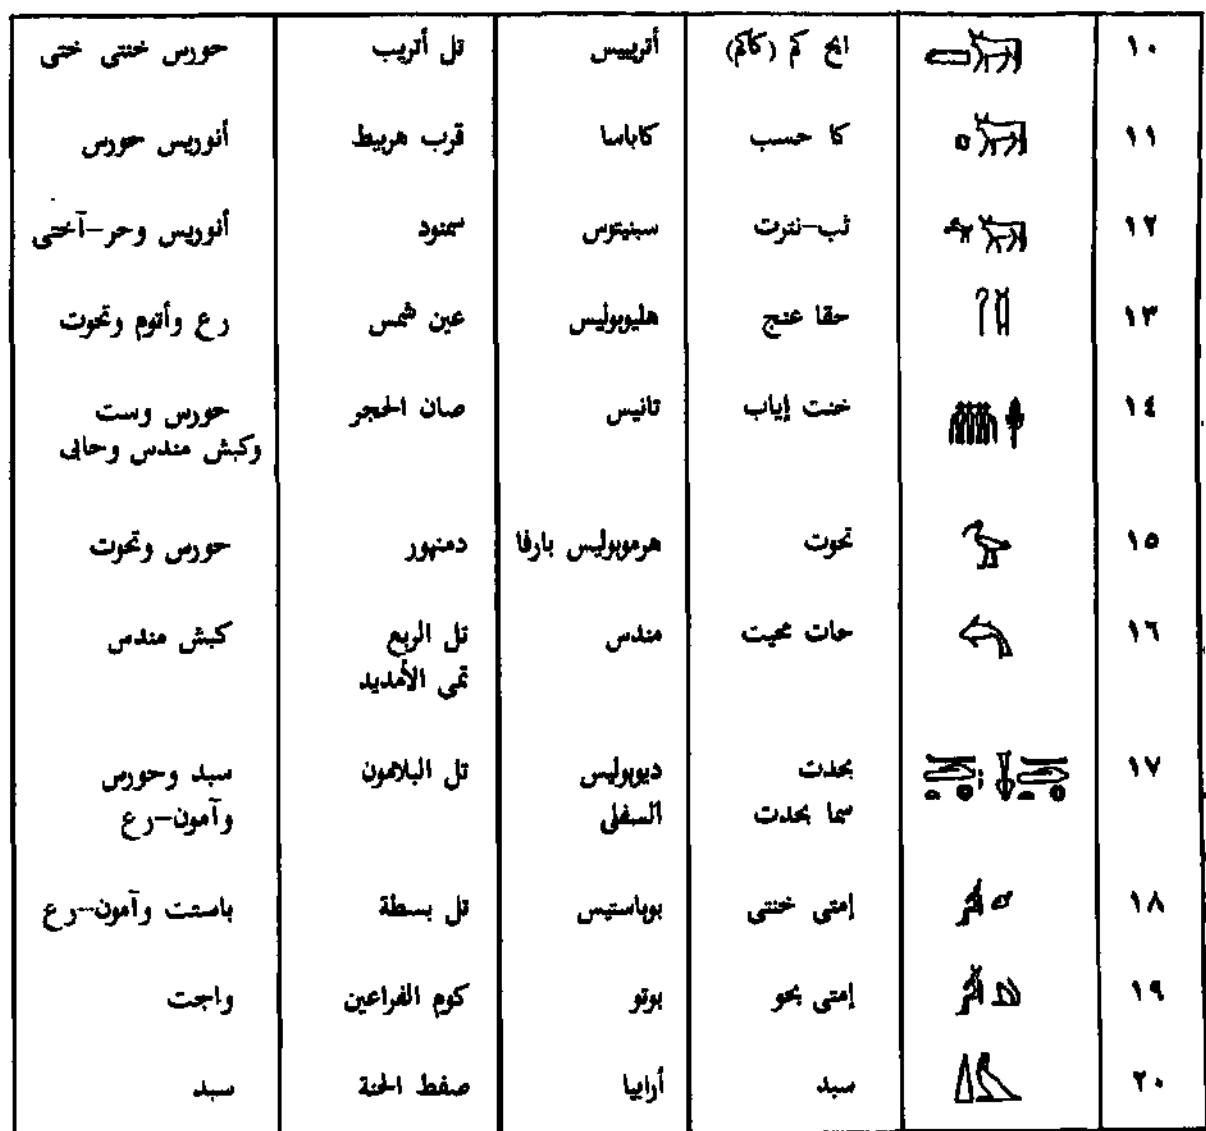 ١٠ اﺢ كم (كاكم) أتريبيس تل أتريب حورس خنتى ختى
١١ كا حسب كاباسا قرب هربيط أنوريس حورس
١٢ ثب–نترت سبنيتوس سمنود أنوريس وحر–آختى
١٣ حقا عنج هليوبوليس عين شمس رع وأتوم وتحوت
١٤ خنت إياب تانيس صان الحجر حورس وست
وكبش مندس وحابى
١٥ تحوت هرموبوليس بارفا دمنهور حورس وتحوت
١٦ حات محيت مندس تل الربع كبش مندس
تمى الأمديد
١٧ بحدت ديوبوليس تل البلامون سبد وحورس
سما بحدت السفلى وآمون–رع
١٨ إمتى خنتى بوباستيس تل بسطة باستت وآمون–رع
١٩ إمتى بحو بوتو كوم الفراعين واجت
٢٠ سبد أرابيا صفط الحنة سبد